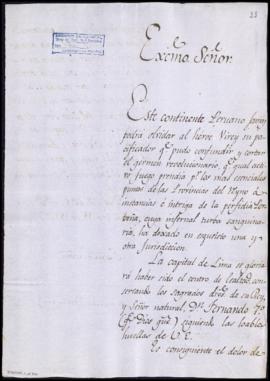 33
Exc̃mo. Señor.
Este continente Peruano jamas
podrá olvidar al heroe Virey su pa-
cificador qe. pudo confundir y cortar
el germen revolucionario, qe. qual activo
fuego prendia pr. los mas esenciales
puntos de las Provincias del Reyno a
instancias é intriga de la perfidia
cuya infernal turba sanguina-
ria, ha dexado en esqueleto una y
otra Jurisdiccion.
La capital de Lima se gloriará
haber sido el centro de lealtad con-
servando los sagrados dros. de su Rey,
y Señor natural, Dn. Fernando 7o.
(qe. Dios gũe) siguiendo las
huellas de V.E.
Es consiguiente el dolor de